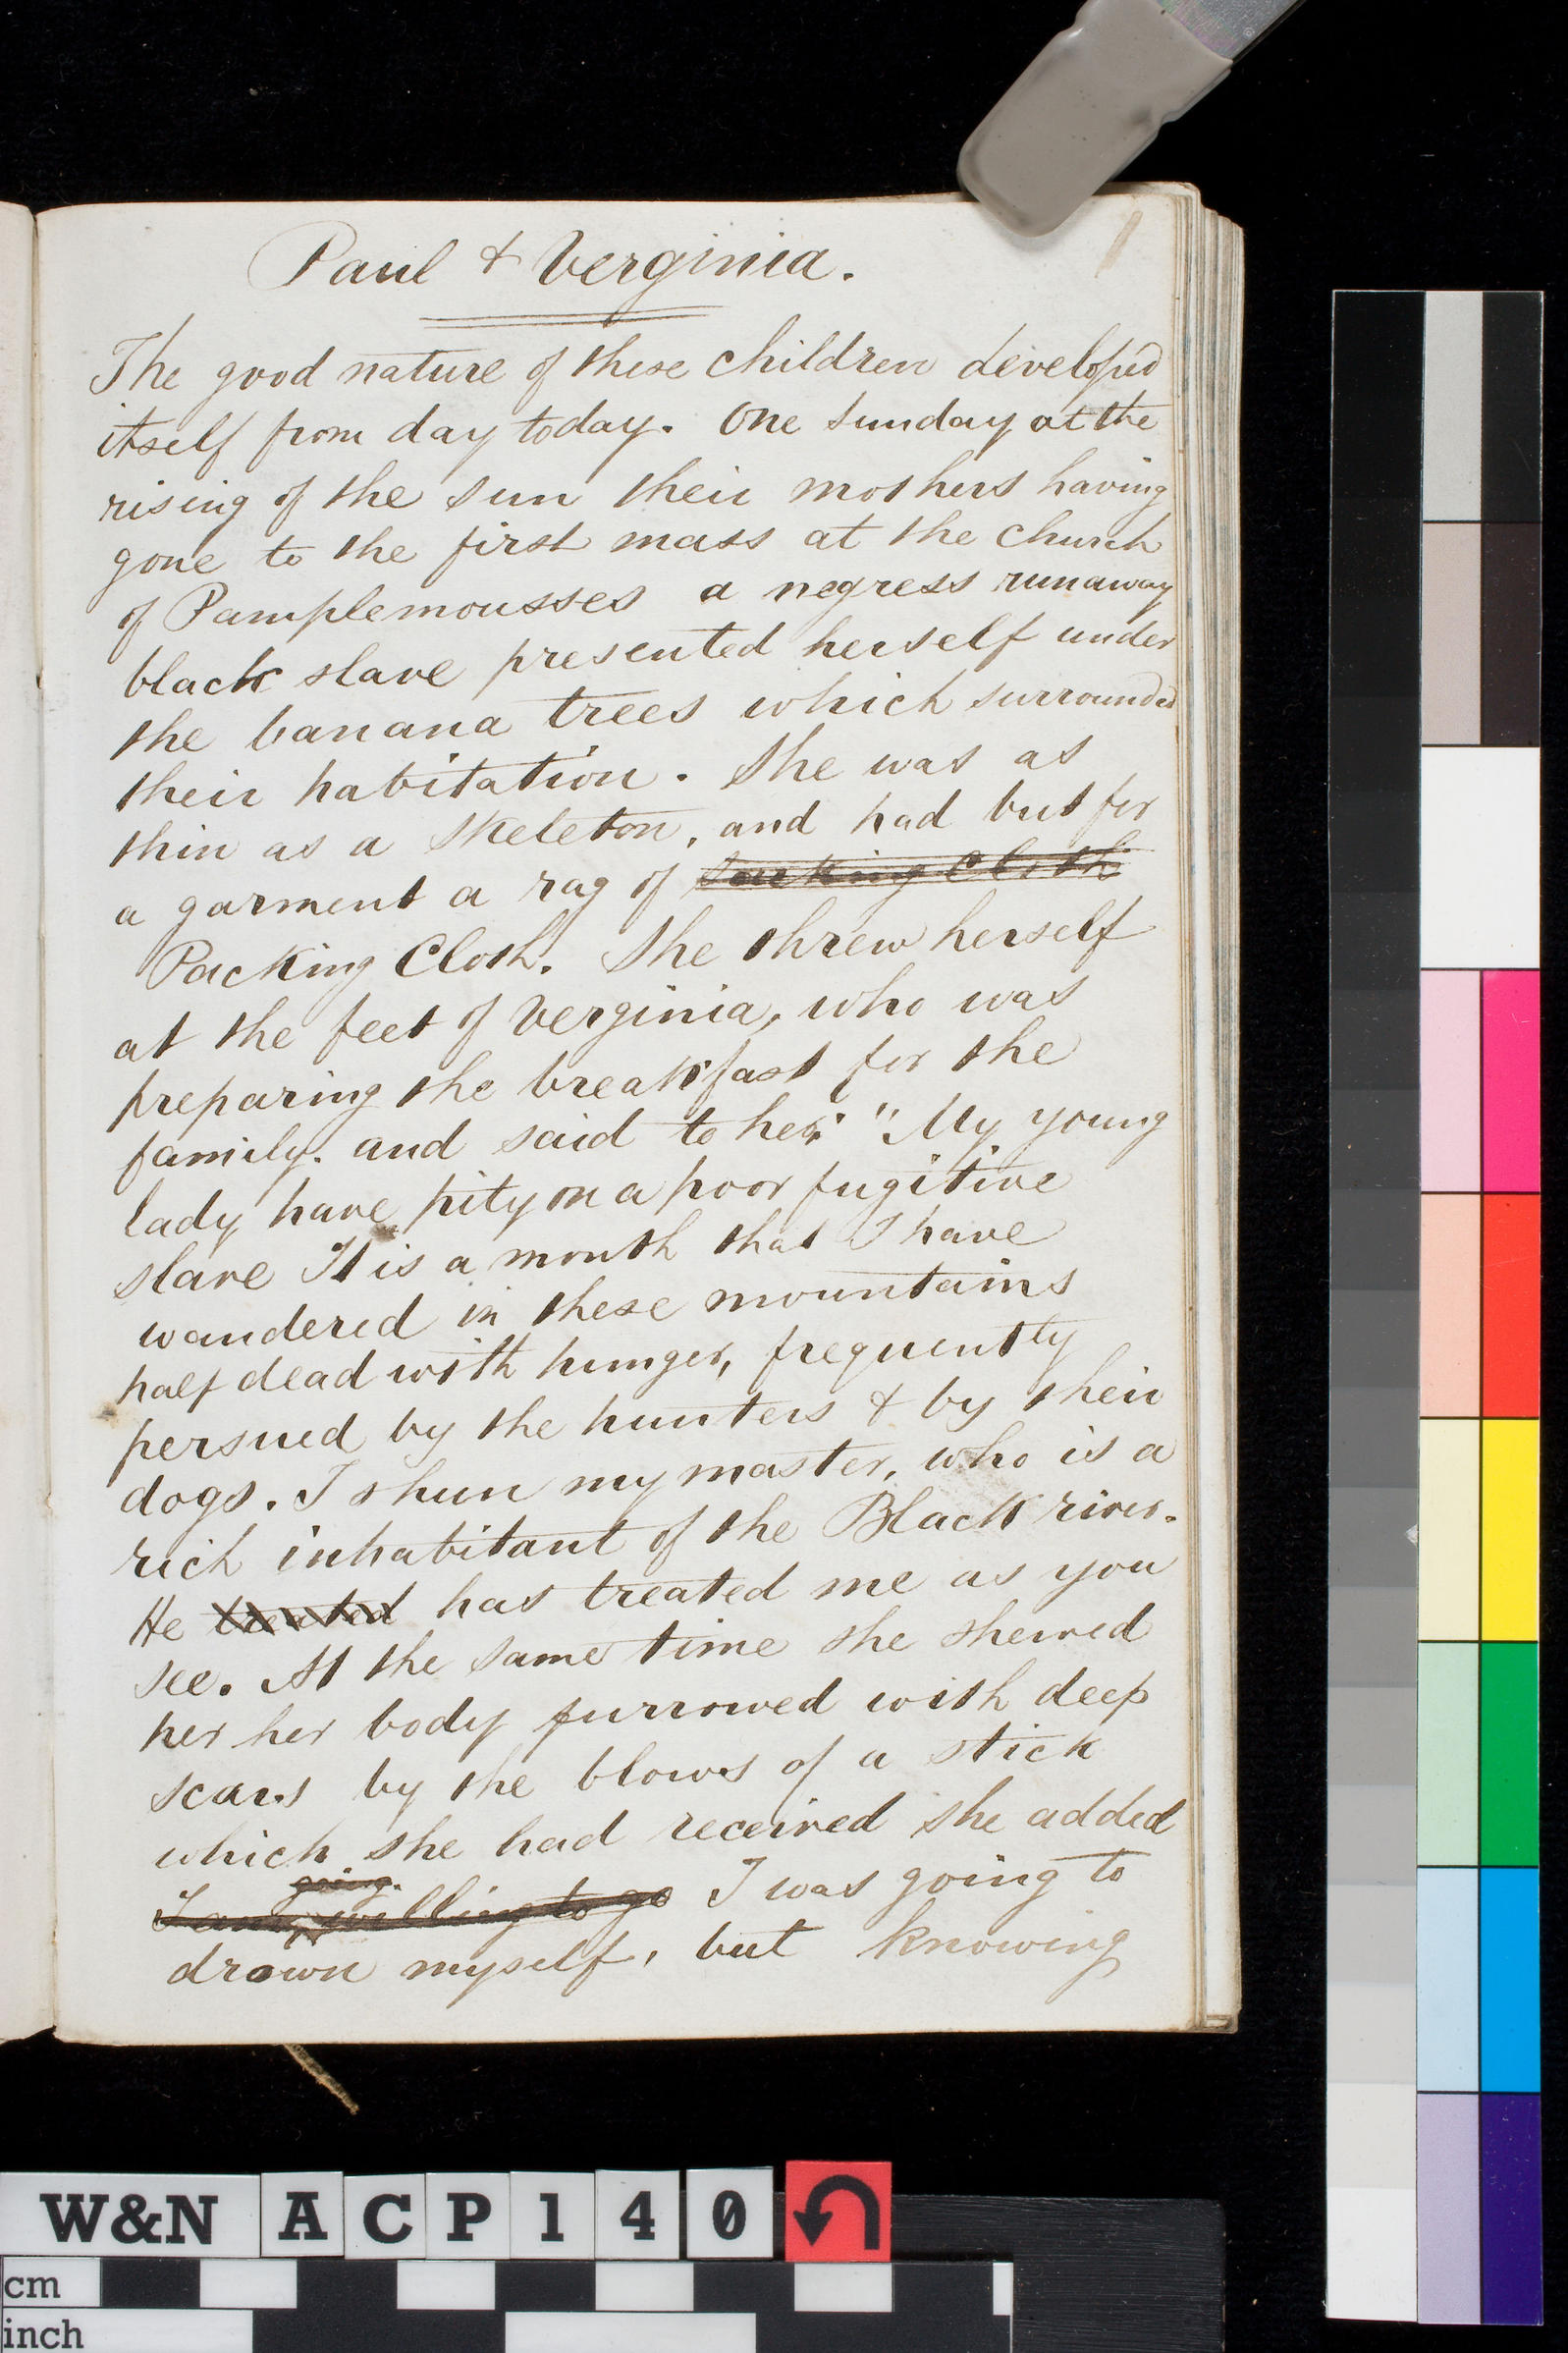 1
Paul & Verginia.
The good nature of these children developed
itself from day today. One Sunday at the
rising of the sun their mothers having
gone to the first mass at the church
of Pamplemousses a negress runaway
black slave presented herself under
the banana trees which surrounded
their habitation. She was as
thin as a skeleton, and had but for
a garment a rag of Sacking Cloth
Packing Cloth. She threw herself
at the feet of Verginia, who was
preparing the breakfast for the
family. and said to her: "My young
lady have pity on a poor fugitive
slave It is a month that I have
wandered in these mountains
half dead with hunger, frequently
persued by the hunters & by their
dogs. I shun my master, who is a
rich inhabitant of the Black river.
He treated has treated me as you
see. At the same time she shewed
her her body furrowed with deep
scars by the blows of a stick
which she had received she added
going
I am willing to go I was going to
drown myself, but knowing
W&N ACP140
cm
inch